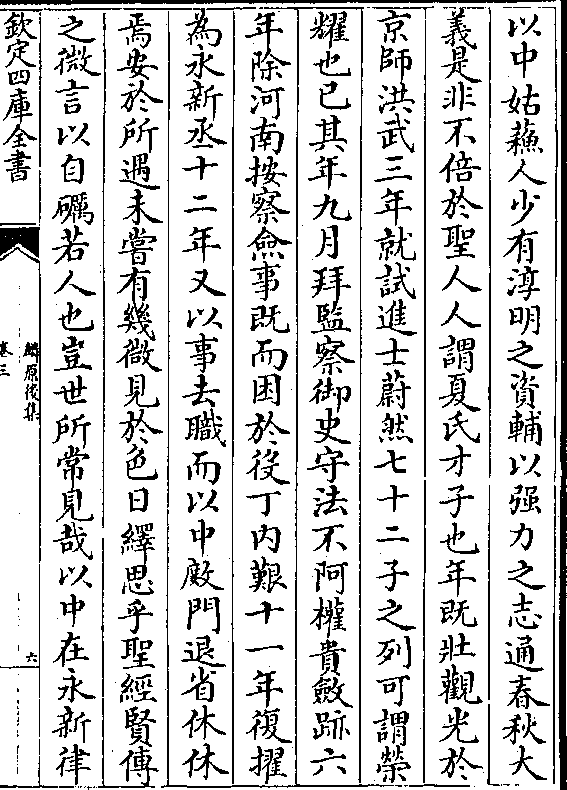 以中姑蘓人少有淳明之資輔以强力之志通春秋大
義是非不倍於聖人人謂夏氏才子也年既壯觀光於
京師洪武三年就試進士蔚然七十二子之列可謂榮
耀也已其年九月拜監察御史守法不阿權貴斂跡六
年除河南按察僉事既而困於役丁内艱十一年復擢
為永新丞十二年又以事去職而以中廄門退省休休
焉安於所遇未嘗有幾微見於色日繹思乎聖經賢傳
之微言以自礪若人也豈世所常見哉以中在永新律
欽定四庫全書
麟原後集
卷三
六